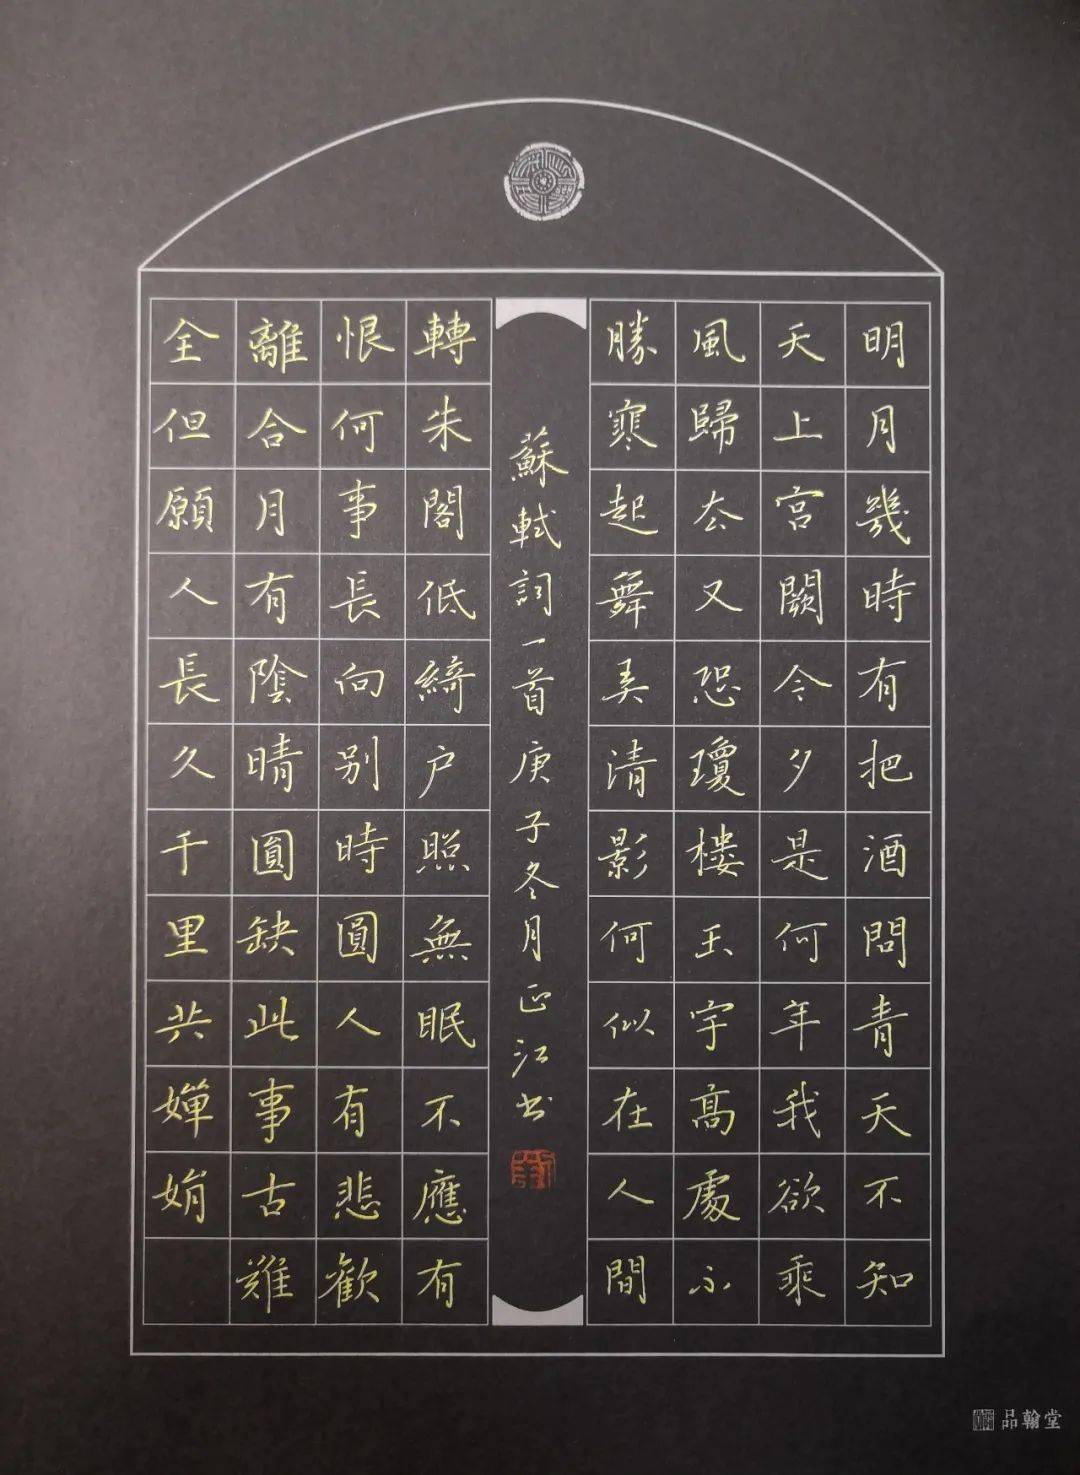 明月幾時有把酒問青天不知
天上宮闕今夕是何年我欲乘
風歸去又恐瓊樓玉宇高處不
勝寒起舞弄清影何似在人間
轉朱閣低綺户照無眠不應有
恨何事長向别時圓人有悲歡
離合月有陰晴圓缺此事古難
全但願人長久千里共嬋娟
蘇軾詞一首庚子冬月正江书
品翰堂